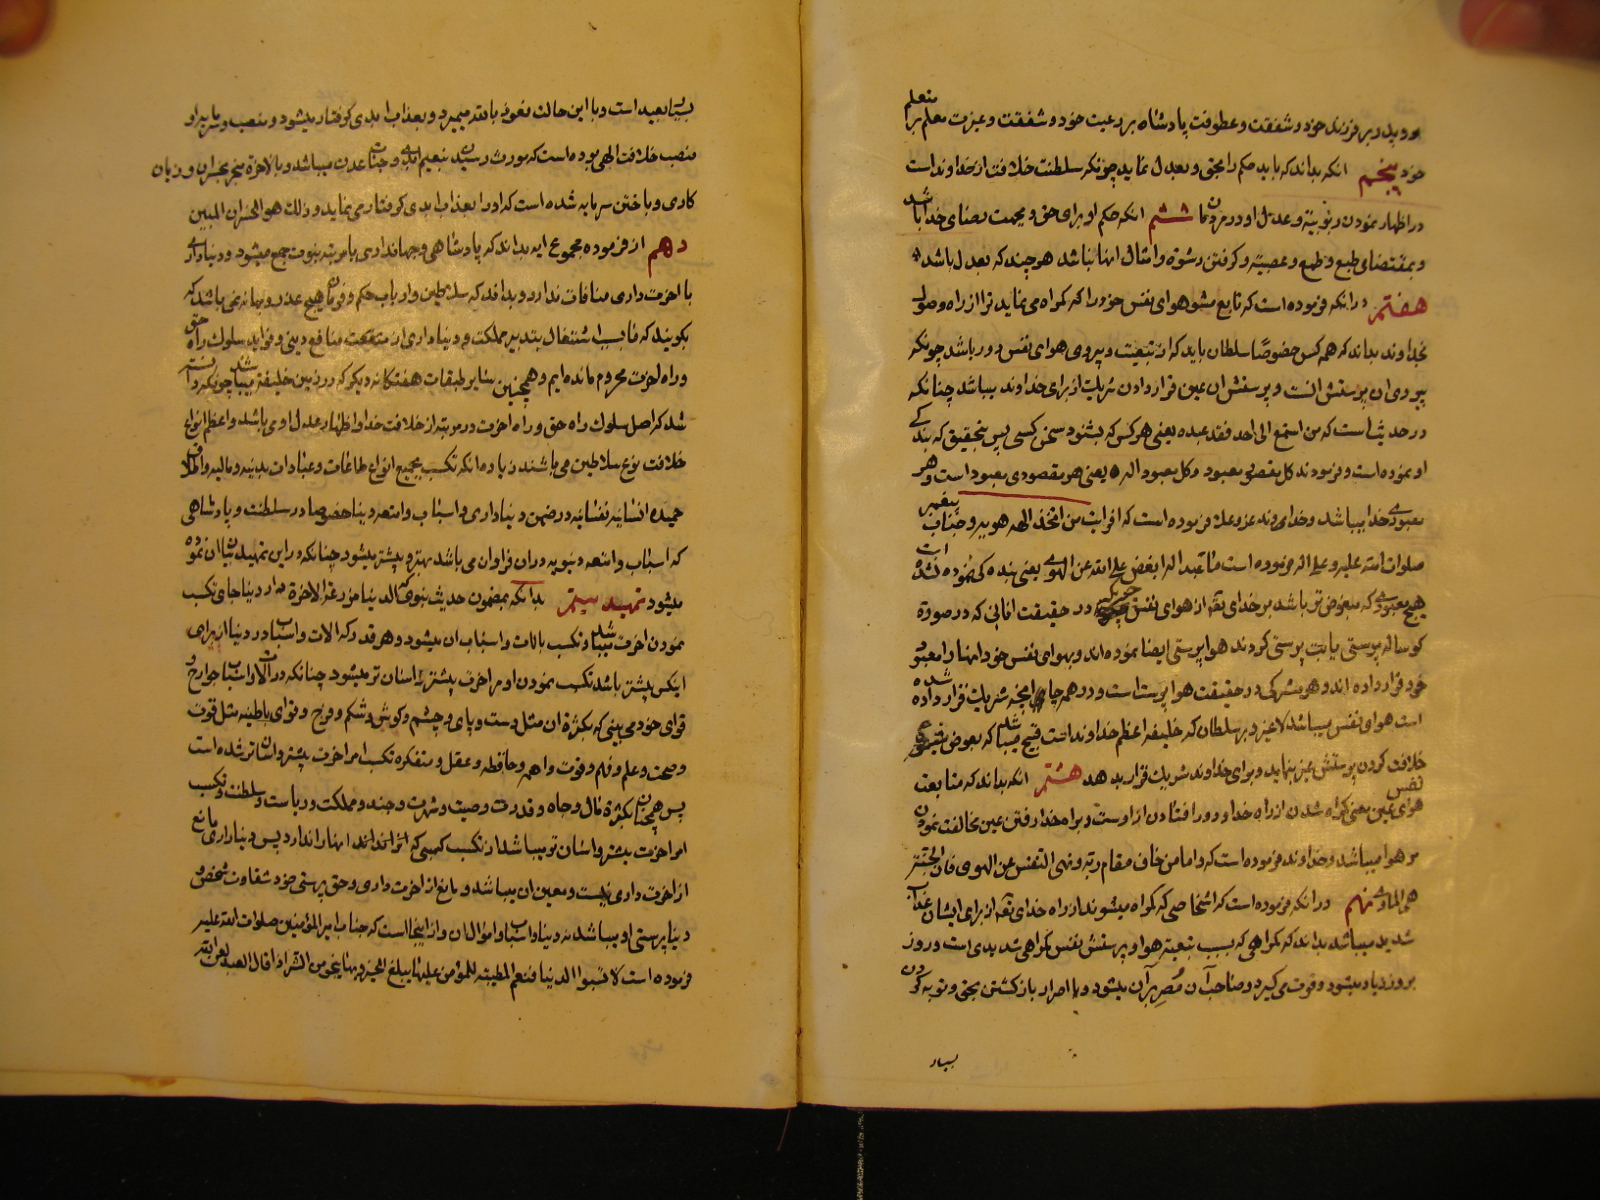 و پدر بر فرزند خود و شفقت و عطوفت پادشاه بر رعیت خود و شفقت و عزت معلم بر متعلم
خود پنجم انکه بداند که باید حکم را بحق و بعدل نماید چونکه سلطنت خلافت از خداوند است
در اظهار نمودن ربوبیته و عدل او در مردمان ششم انکه حکم او برای حق و بجهت رضای خدا باشد
و بمقتضای طبع و طمع و عصبیته و کرفتن رشوة و امثال انها نباشد هر چند که بعدل باشد
هفتم در انکه فرموده است که تابع مشو هوای نفس خود را که کمراه می نماید ترا از راه وصول
بخداوند بداند که همه کس خصوصًا سلطان باید که از تبعیت و پیروی هوای نفس دور باشد چونکه
پیروی ان پرستش انست و پرستش ان عین قرار دادن شریک از برای خداوند میباشد چنانکه
در حدیث است که من استمع الی احد فقد عبده یعنی هر کس که بشنود سخن کسی پس بتحقیق که بندکی
او نموده است و فرمودند کل مقصود معبود و کل معبود اله یعنی هر مقصودی معبود است و هر
معبودی خدا میباشد و خداوند عز و علا فرموده است که افرایت من اتخذ الهه هویه و جناب پیغمبر
صلوات الله علیه و علی اله فرموده است ما عبد اله ابغض علی الله عن الهوی یعنی بنده کی نموده نشده است
هیچ معبودی که مبغوض تر باشد بر خدای تعه از هوای نفس چونکه در حقیقت انانی که در صورة
کوساله پرستی یا بت پرستی کردند هوا پرستی ایضا نموده اند و بهوای نفس خود انها را معبود
خود قرار داده اند و هر مشرکی در حقیقت هوا پرست است و در همه جا انچه شریک قرار داده شده
است هوای نفس میباشد لا غیر و بر سلطان که خلیفه اعظم خداوند است قبیح میباشد که بعوض
خلافت کردن پرستش غیر بنماید و برای خداوند شریک قرار بدهد هشتم انکه بداند که متابعت
هوای نفس عین یعنی کمراه شدن از راه خدا و دور افتادن از اوست و براه خدا رفتن عین مخالفت نمودن
مر هوا میباشد و خداوند فرموده است که و اما من خاف مقام ربه و نهی النفس عن الهوی فان الجنة
هی الماوی نهم در انکه فرموده است که اشخاصی که کمراه میشوند از راه خدای تعه از برای ایشان عذاب
شدید میباشد بداند که کمراهی که بسبب تبعیة هوا و پرستش نفس کمراهی شدیدی است و روز
بروز زیاد میشود و قوت میکیرد و صاحب آن مُصر بر آن میشود و با اصرار بازکشتن بحق و توبه کردن
بسیار
بسیار بعید است و با این حالت نعوذ بالله میمیرد و بعذاب ابدی کرفتار میشود و منصب و سرمایه او
منصب خلافت الهی بوده است که مورث رسیدن بنعیم ابدی و جنات عدن میباشد و بالاخرة منجر بخسران و زیان
کاری و باختن سرمایه شده است که او را بعذاب ابدی کرفتار می نماید و ذلک هو الخسران المبین
دهم از فرموده مجموع ایه بداند که پادشاهی و جهانداری با مرتبه نبوت جمع میشود و دنیاداری
با اخرت داری منافات ندارد و بدانند که سلاطین و ارباب حکم و فرمان هیچ عذر و بهانه نمی باشد که
بکویند که ما بسبب اشتغال بتدبیر مملکت و دنیاداری از منفعت منافع دینی و فواید سلوک راه حق
و راه اخرت محروم مانده ایم و همچنین سایر طبقات هفتکانه دیکر که در زمین خلیفه میباشند چونکه دانسته
شد که اصل سلوک راه حق و راه اخرت در مرتبه از خلافت خدا و اظهار عدل اوی باشد و اعظم انواع
خلافت نوع سلاطین می باشند زیاده انکه تکسب جمیع انواع طاعات و عبادات بدنیه و مالیه و اخلاق
حمیده انسانیه نفسانیه در ضمن دنیاداری و اسباب و امتعه دنیا خصوصا در سلطنت و پادشاهی
که اسباب و امتعه دنیویه در ان فراوان می باشد بهتر و بیشتر میشود چنانکه در این تمهید بیان نموده
میشود تمهید بیستم بدانکه بمضمون حدیث نبوی که الدنیا مزرعة الاخرة دار دنیا جای تکسب
نمودن اخرت میباشد و تکسب بالات و اسباب ان میشود و هر قدر که الات و اسباب در دنیا از برای
اینکس بیشتر باشد تکسب نمودن او مر اخرت را بیشتر و اسان تر میشود چنانکه در الات و اسباب جوارح و
قوای خود می بینی که بکثرة ان مثل دست و پای و چشم و کوش و شکم و فرج و قوای باطنیه مثل قوت
و صحت و علم و فهم و قوت واهمه و حافظه و عقل و متفکره تکسب امر اخرت بیشتر و اسان تر شده است
پس همچنان بکثرة مال و جاه و قدرت و صیت و شهرت و جند و مملکت و ریاست و سلطنت تکسب
امر اخرت بیشتر و اسان تر میباشد از تکسب کسی که اثر انها را ندارد پس دنیاداری مانع
از اخرت داری نیست و معین ان میباشد و مانع از اخرت داری و حق پرستی خود شقاوت شخص و
دنیا پرستی او میباشد نه دنیا و اسباب و اموال ان و از اینجا است که جناب امیر المؤمنین صلوات الله علیه
فرموده است لا تسبوا الدنیا فنعم المطیة للمؤمن علیها یبلغ الخیر و بها ینجو من الشر اذا قال العبد لعن الله